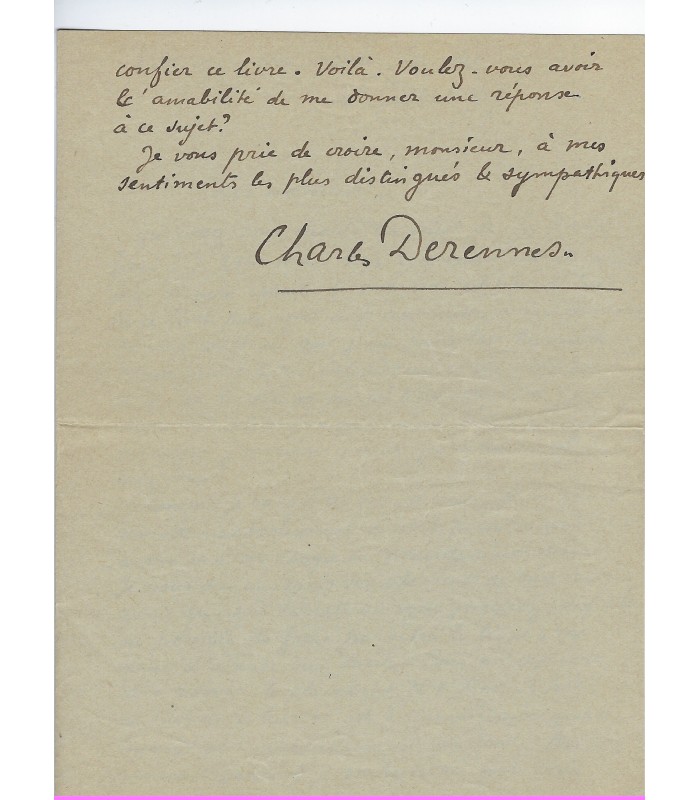 confier ce livre. Voilà. Voulez-vous avoir
l'amabilité de me donner une réponse
à ce sujet?
Je vous prie de croire, monsieur, à mes
sentiments les plus distingués & sympathiques
Charles Derennes.